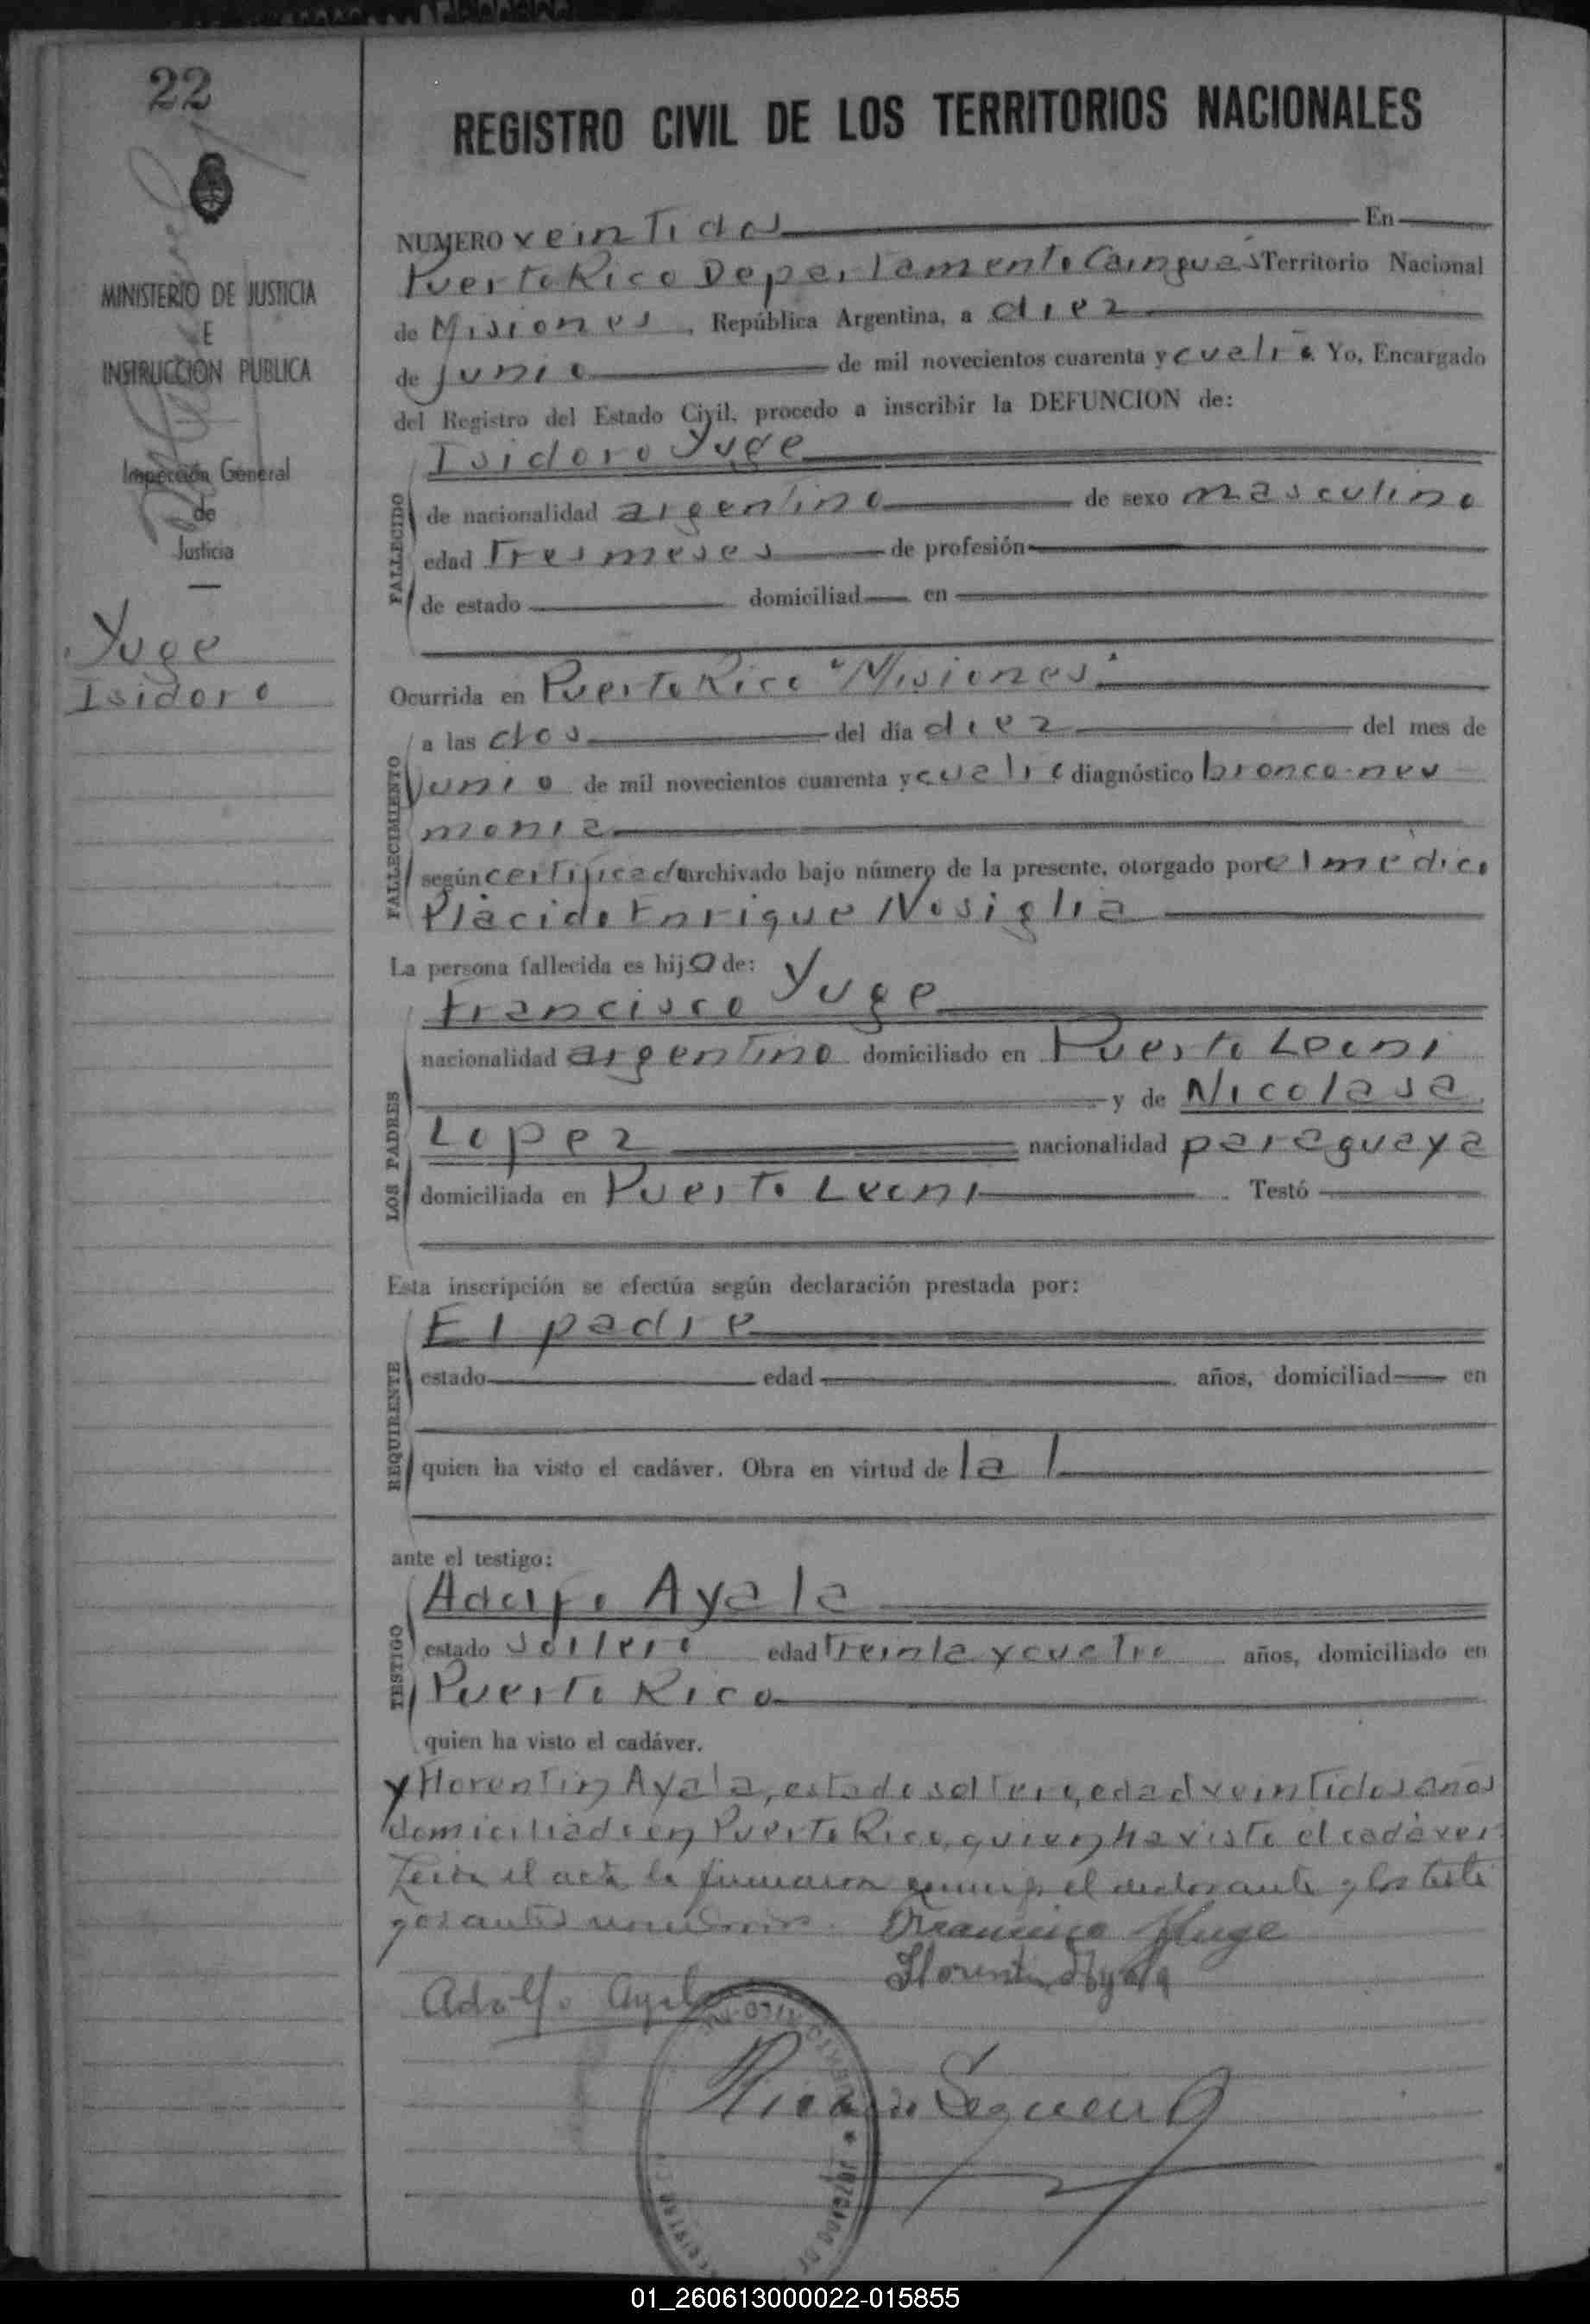 22
MINISTERIO DE JUSTICIA
E
INSTRUCCION PUBLICA
Inspección General
de
Justicia
Yuge
Isidoro
REGISTRO CIVIL DE LOS TERRITORIOS NACIONALES
NUMERO veintidos En
Puerto Rico Departamento Cainguás Territorio Nacional
de Misiones, República Argentina, a diez
de junio de mil novecientos cuarenta y cuatro. Yo, Encargado
del Registro del Estado Civil, procedo a inscribir la DEFUNCION de:
Isidoro Yuge
FALLECIDO
de nacionalidad argentino de sexo masculino
edad Tres meses de profesión
de estado domiciliad en
Ocurrida en Puerto Rico "Misiones"
FALLECIMIENTO
a las dos del día diez del mes de
Junio de mil novecientos cuarenta y cuatro diagnóstico bronco-neu
monia
según certificado archivado bajo número de la presente, otorgado por el medico
Plácido Enrique Nosiglia
La persona fallecida es hijo de:
LOS PADRES
Francisco Yuge
nacionalidad argentino domiciliado en Puerto Leoni
y de Nicolasa
Lopez nacionalidad paraguaya
domiciliada en Puerto Leoni. Testó
Esta inscripción se efectúa según declaración prestada por:
REQUIRENTE
El padre
estado edad años, domiciliad en
quien ha visto el cadáver. Obra en virtud de la l
ante el testigo:
TESTIGO
Adolfo Ayala
estado soltero edad treinta y cuatro años, domiciliado en
Puerto Rico
quien ha visto el cadáver.
y Florentin Ayala, estado soltero, edad veintidos años
domiciliado en Puerto Rico, quien ha visto el cadáver
Leida el acta la firmaron conmigo el declarante y los testi
gos antes
Francisco Yuge
Florentin Ayala
Adolfo Ayala
Ricardo
JUZGADO DE
01_260613000022-015855